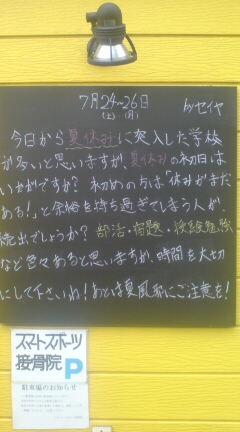 7月24~26日
(土) (月)
byセイヤ
今日から夏休みに突入した学校
が多いと思いますが、夏休みの初日は
いかがですか？初めの方は「休みがまだ
ある！」と余裕を持ち過ぎてしまう人が
続出でしょうか？部活・宿題・受験勉強
など色々あると思いますが、時間を大切
にして下さいね！あとは夏風邪にご注意を！
スマートスポーツ
接骨院 P
駐車場のお知らせ